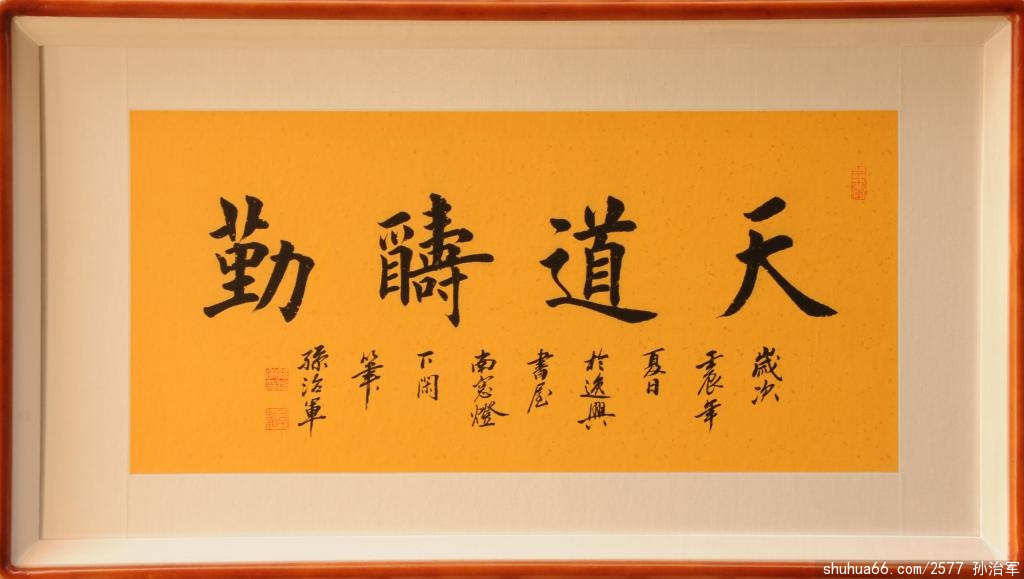 天道酬勤
歲次
壬辰年
夏日
於逸興
書屋
南窓燈
下閑
筆
孫治軍
shuhua66.com/2577 孙治军